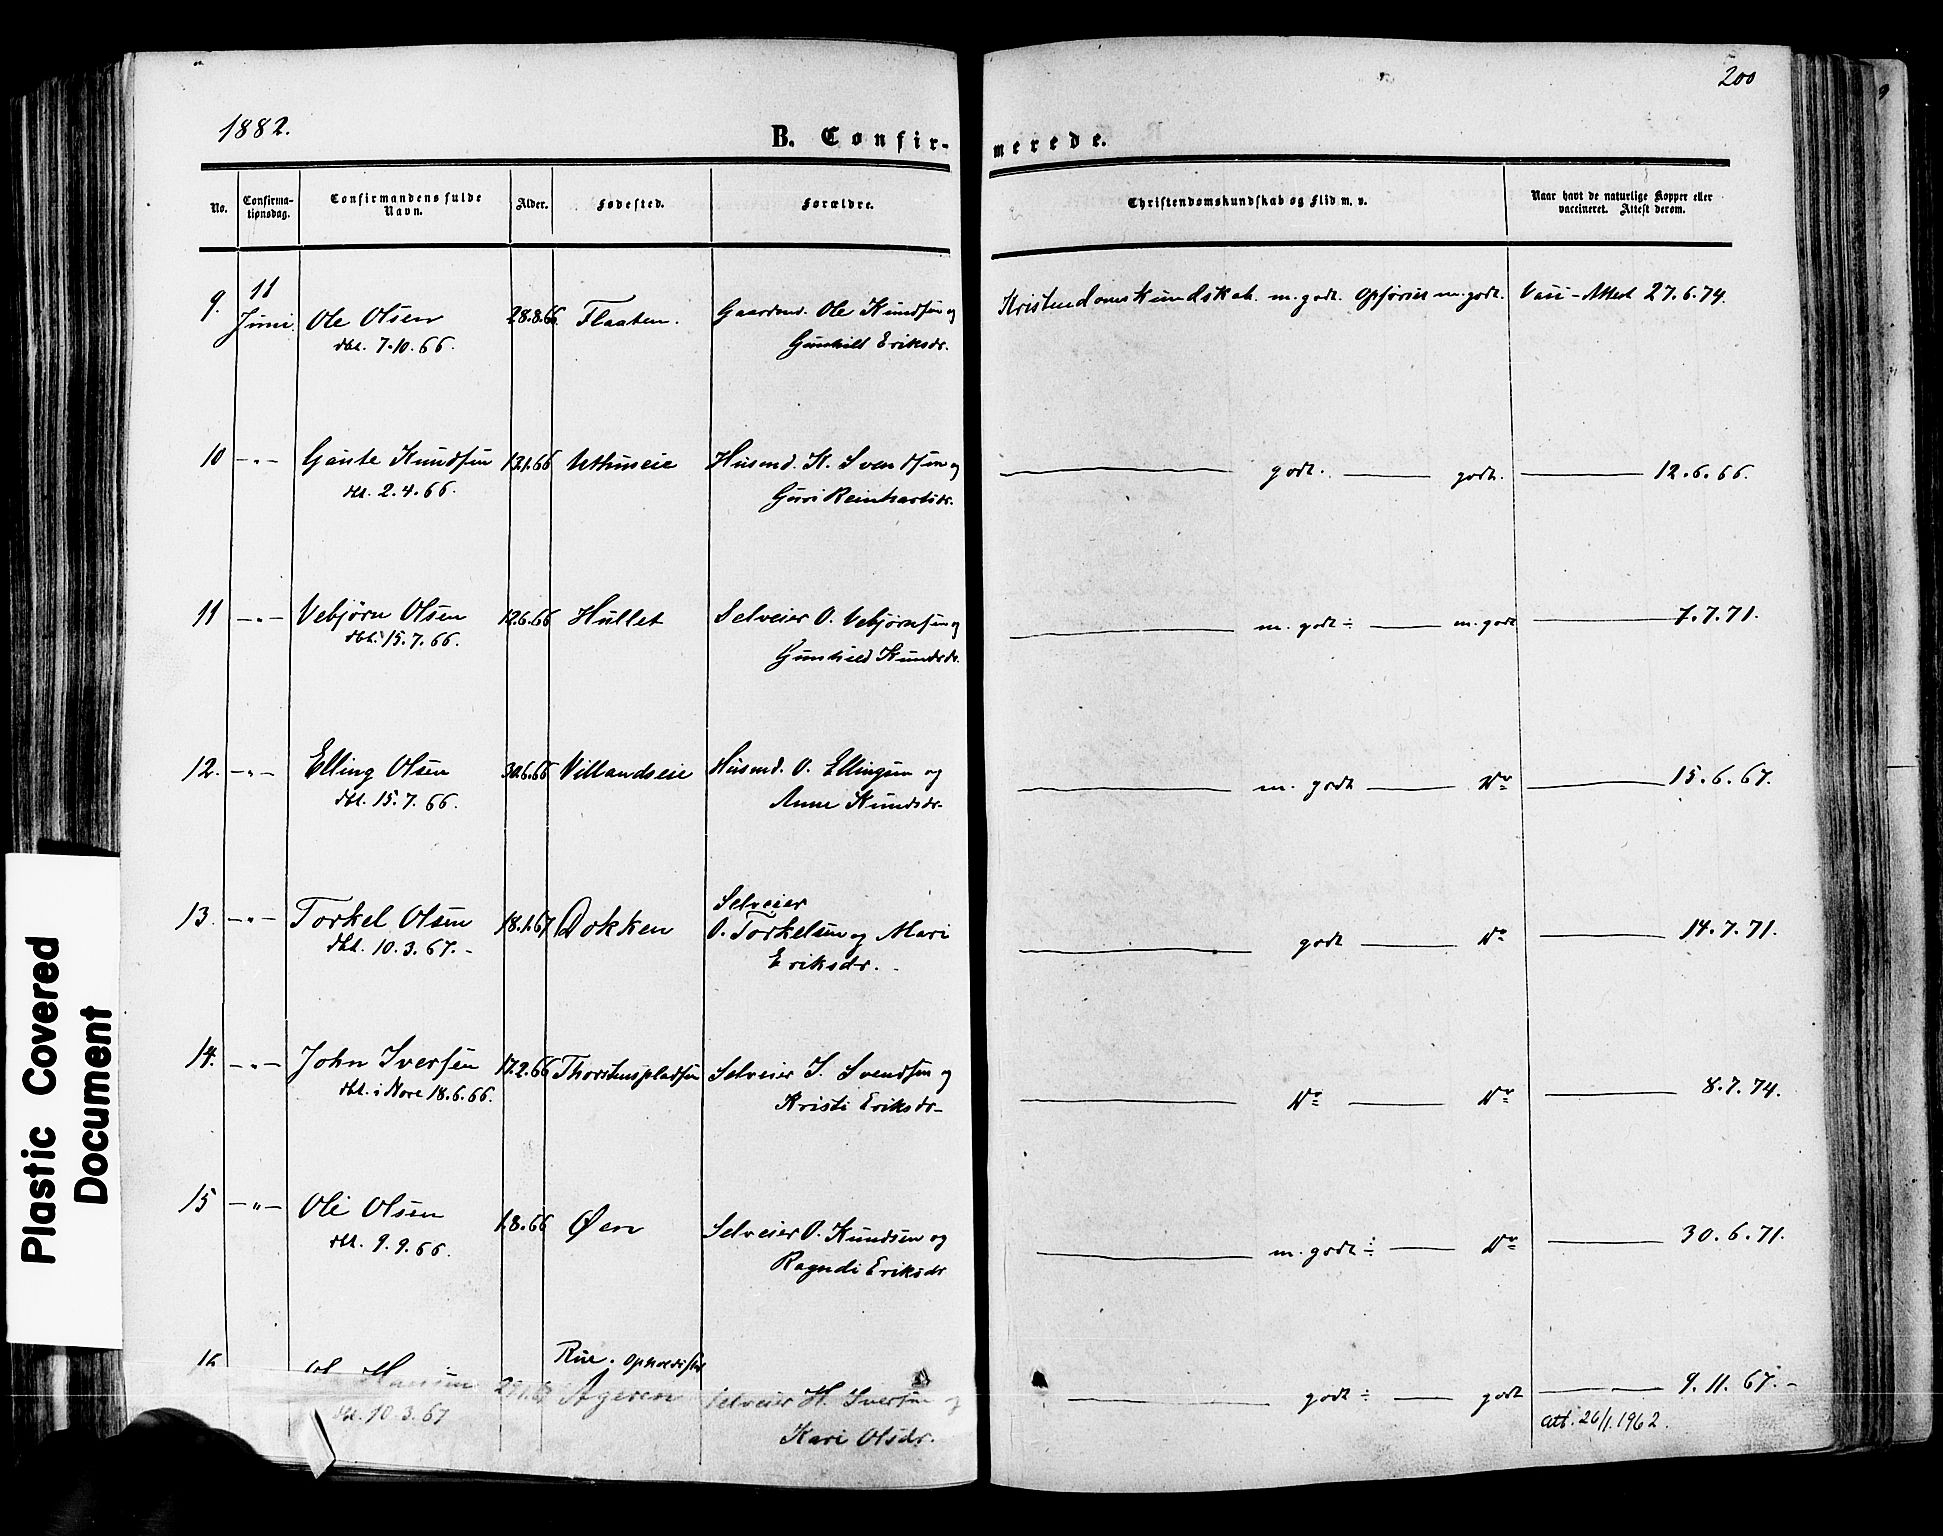 200
1882.
B. Confir-
merede.
No. Confirma-tionsdag. Confirmandens fulde Navn. Alder. Fødested. Forældre. Christendomskundskab og Flid m. v. Naar havt de naturlige Kopper eller vaccineret. Attest derom.
9. 11 Juni Ole Olsen 28.8.66 Flaaten. Gaardmd. Ole Knudsen og Kristendomskundskab m. godt. Opførsel m. godt. Vacc-Attest 27.6.74.
dbt. 7.10.66. Gunhild Eriksdr.
10 -"- Gaute Knudsen 12.1.66 Uthuseie Husmd. K. Svendsen og godt. godt. 12.6.66.
dbt. 2.4.66. Guri Reinhartsdr.
11 -"- Vebjørn Olsen 12.6.66 Hullet Selveier O. Vebjørnsen og m. godt ÷ m. godt 7.7.71.
dbt. 15.7.66. Gunhild Knudsdr.
12. -"- Elling Olsen 30.6.66 Villandseie Husmd. O. Ellingsen og m. godt Do 15.6.67.
dbt. 15.7.66. Anne Knudsdr.
Selveier
13. -"- Torkel Olsen 18.1.67 Dokken O. Torkelsen og Mari godt Do 14.7.71.
dbt. 10.3.67.- Eriksdr.
14. -"- John Iversen 17.2.66 Thorstenspladsen Selveier I. Svendsen og Do Do 8.7.74.
dbt. i Nore 18.6.66. Kristi Eriksdr.
15 -"- Ole Olsen 1.8.66 Øen Selveier O. Knudsen og m. godt ÷ Do 30.6.71.
dbt. 9.9.66. Ragndi Eriksdr
Rue. Opholdssted
16 Hansen Ageren Selveier H. Iversen og godt ÷ godt 9.11.67.-
dbt. 10.3.67 Kari Olsdr. att. 26/1.1962.
Plastic Covered
Document